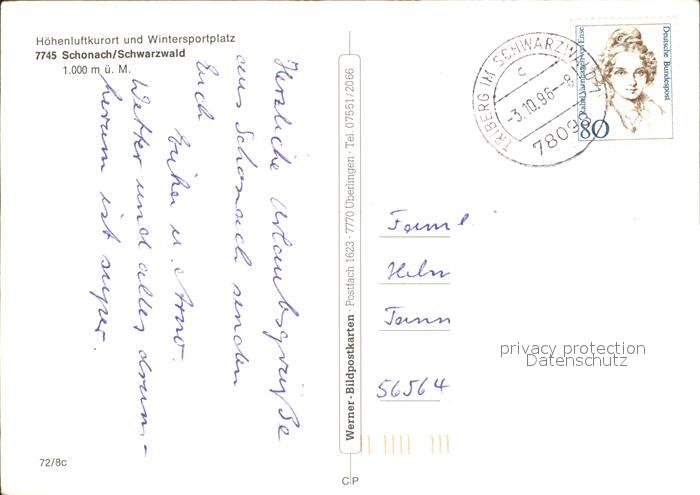 Höhenluftkurort und Wintersportplatz
7745 Schonach/Schwarzwald
1.000 m ü. M.
Herzliche Urlaubsgrüße
aus Schonach senden
Euch
Erika u. Arno.
Wetter und alles drum-
herum ist super.
72/8c
Werner-Bildpostkarten · Postfach 1623 · 7770 Überlingen · Tel. 07551/2066
CP
TRIBERG IM SCHWARZWALD 1
c
-3.10.96--8
7809
Deutsche Bundespost
80
Faml
Helm
Tann
56564
privacy protection
Datenschutz